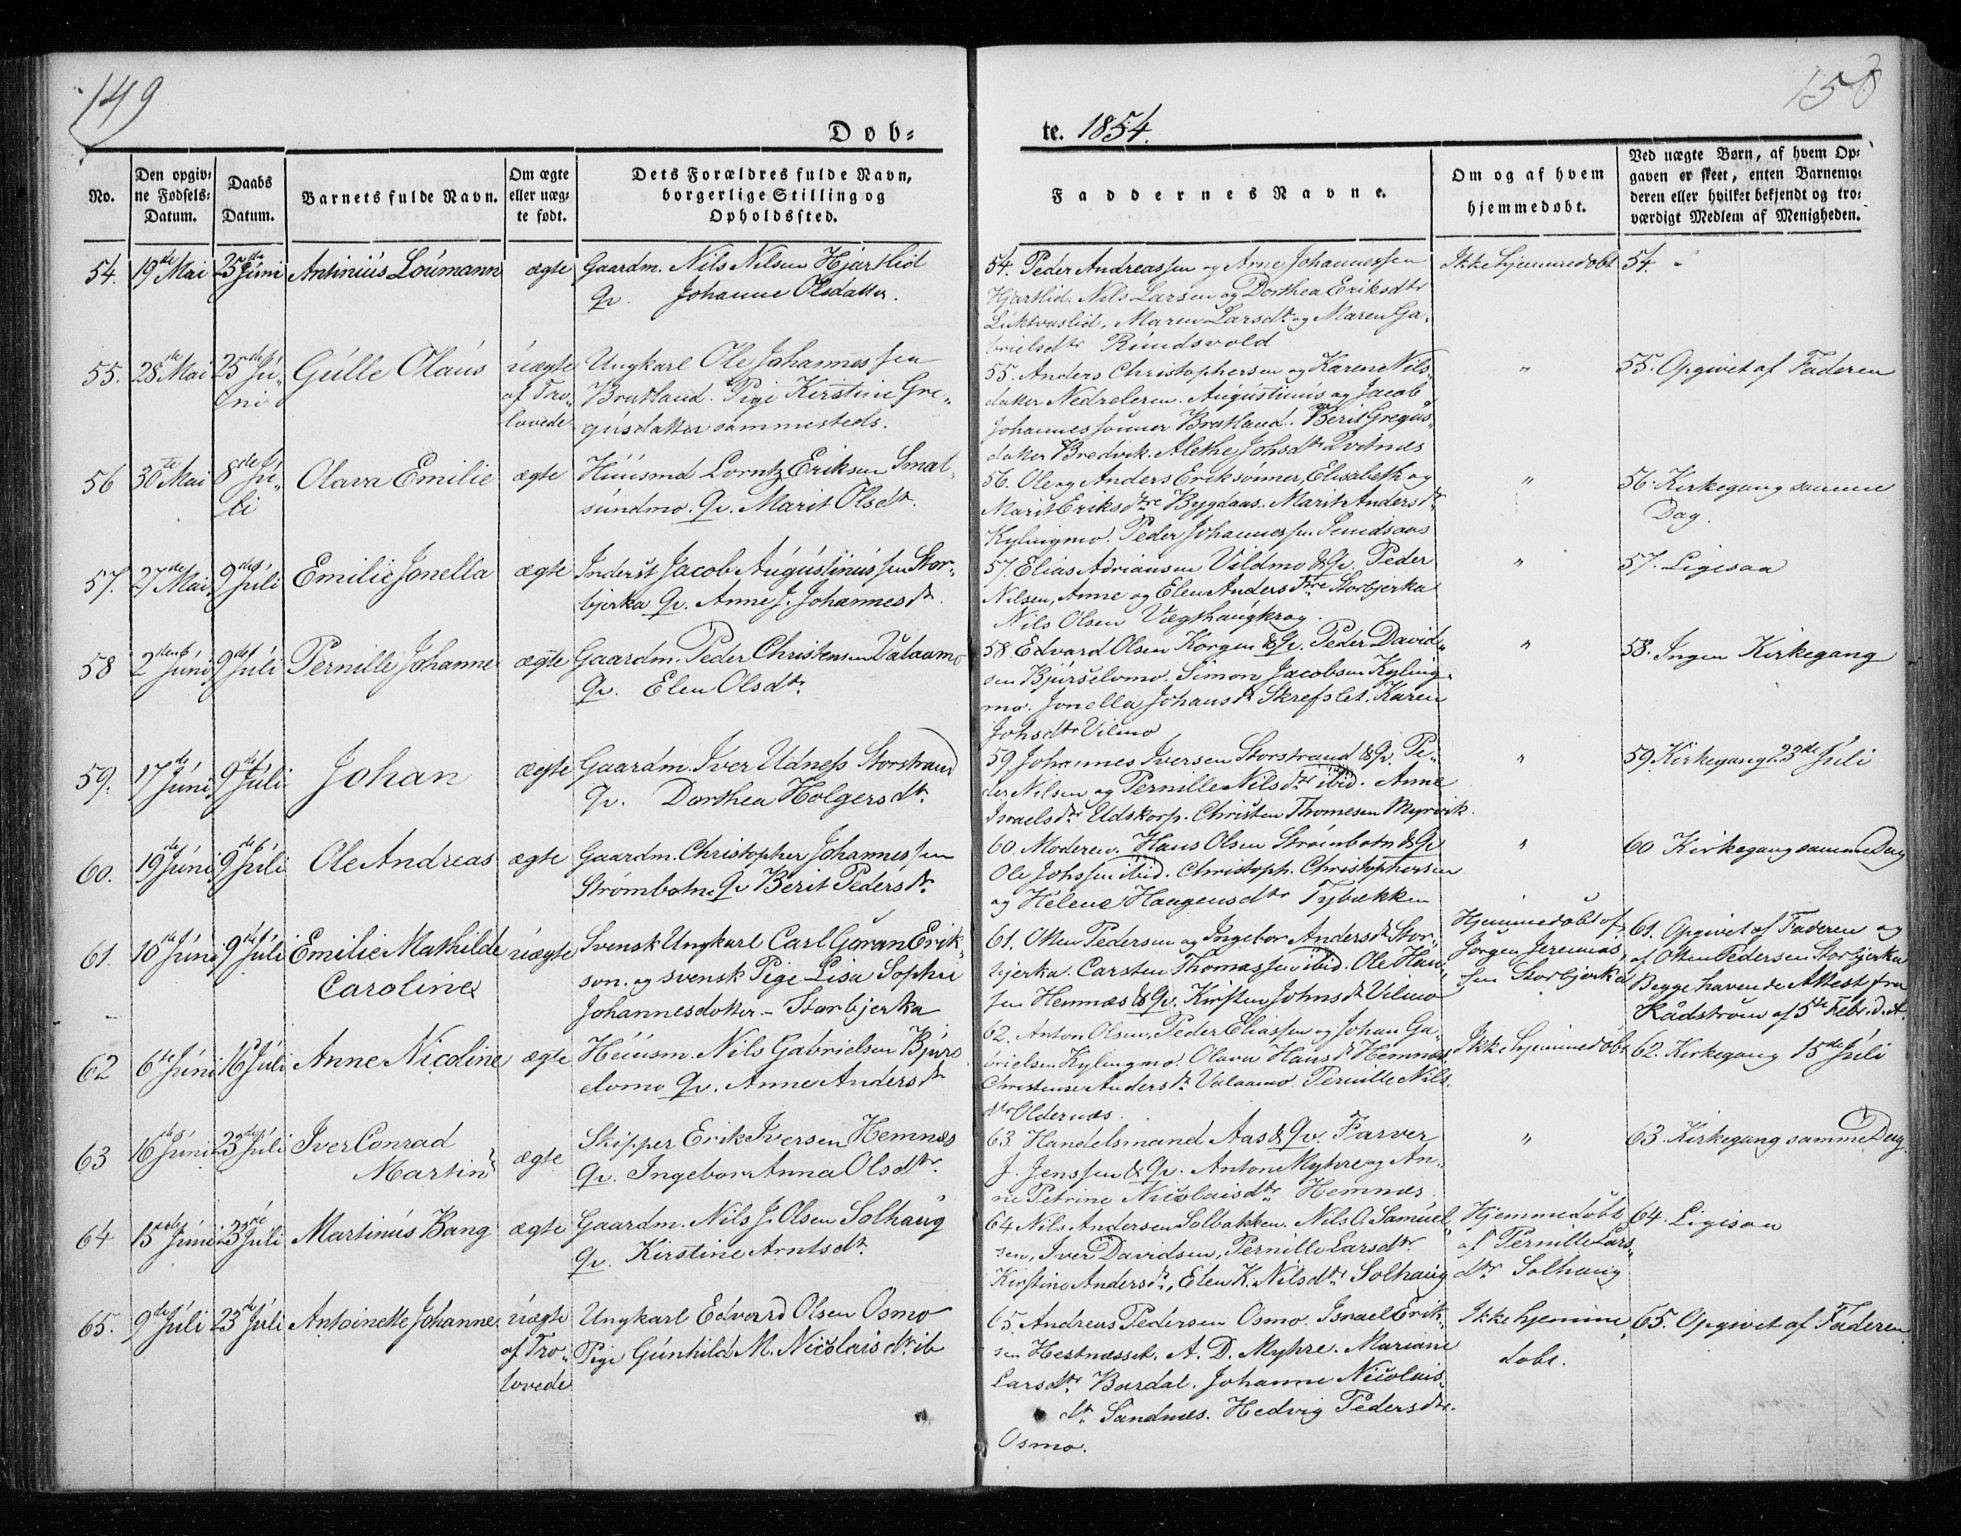 149
150
Døb-
te. 1854.
No.
Den opgiv-
ne Fødsels-
Datum.
Daabs
Datum.
Barnets fulde Navn.
Om ægte
eller uæg-
te født.
Dets Forældres fulde Navn,
borgerlige Stilling og
Opholdssted.
Faddernes Navne.
Om og af hvem
hjemmedøbt.
Ved uægte Børn, af hvem Op-
gaven er skeet, enten Barnemo-
deren eller hvilket bekjendt og tro-
værdigt Medlem af Menigheden.
54. 19de Mai 25de Júni Antiniús Loúmann ægte
Gaardm. Nils Nilsen Hjartlid
Qv. Johanne Olsdatter.
54. Peder Andreassen og Arne Johannessen
Hjartlid. Nils Larsen og Dorthea Eriksdtr
Luktvaslid, Maren Larsdtr og Maren Ga-
brielsdtr Rúndsvold
Ikke hjemmedøbt
54. "
55. 28de Mai 25de Jú-
ni
Gúlle Olaús
úægte
af Tro-
lovede
Ungkarl Ole Johannessen
Bratland. Pige Kirstine Gre-
gúsdatter sammesteds.
55. Anders Christophersen og Karen Nils-
datter Nedreleren. Aúgústinús og Jacob
Johannessønner Bratland. Berit Gregús-
datter Bredvik. Alethe Johsdtr Qvitnæs
"
55. Opgivet af Faderen
56 30te Mai 8de Jú-
li
Olava Emilie ægte
Húúsmd Lorntz Eriksen Smal-
súndmo. Qv. Marit Olsdtr.
56. Ole og Anders Erikssønner, Elisabeth og
Marit Eriksdtre Bygdaas. Marit Andersdtr
Kylingmo. Peder Johannessen
"
56. Kirkegang samme
Dag.
57. 27de Mai 9de Júli Emilie Jonella ægte
Inderst Jacob Aúgústinússen Stor-
bjerka Qv. Anne J. Johannesdtr.
57. Elias Adriansen Vildmo & Qv. Peder
Nilsen, Anne og Elen Andersdtre Storbjerka
Nils Olsen Vægthaúgkrog.
"
57. Ligesaa
58 2den Júni 9de Júli Pernille Johanne ægte
Gaardm. Peder Christensen Valaamo
Qv. Elen Olsdtr.
58. Edvard Olsen Korgen & Qv. Peder David-
sen Bjúrselvmo. Simon Jacobsen Kyling-
mo. Jonella Johansdtr Skrefslet. Karen
Johsdtr Vilmo
"
58. Ingen Kirkegang
59. 17de Júni 9de Júli Johan ægte
Gaardm. Iver Udness Storstrand
Qv. Dorthea Holgersdtr.
59 Johannes Iversen Storstrand & Qv. Pe-
der Nilsen og Pernille Nilsdtr ibid. Anne
Israelsdtr Udskorp. Christen Thomesen Myrvik.
"
59. Kirkegang 23de Júli
60. 19de Júni 9de Júli Ole Andreas ægte
Gaardm. Christopher Johannessen
Strømbotn Qv Berit Pedersdtr
60. Moderen. Hans Olsen Strømbotn & Qv
Ole Johssen ibid. Christoph. Christophersen
og Helene Haagensdtr Tybækken
"
60 Kirkegang samme Dag
61. 10de Júni 9de Júli Emilie Mathilde
Caroline
úægte
Svensk Ungkarl Carl Gøran Erik-
son. og svensk Pige Lisa Sophie
Johannesdotter - Storbjerka
61. Otten Pedersen og Ingebor Andersdtr Stor-
bjerka. Carsten Thomassen ibid. Ole Han-
sen Hemnæs & Qv. Kirsten Johnsdtr Velmo
Hjemmedøbt af
Jørgen Jeremias-
sen Storbjerka
61. Opgivet af Faderen og
af Otten Pedersen Storbjerka
Begge havende Attest fra
Rådstrøm af 5te Febr. d. A.
62 6te Júni 16de Júli Anne Nicoline ægte
Húúsm. Nils Gabrielsen Bjúrs
elvmo Qv. Anne Andersdtr
62. Anton Olsen, Peder Eliassen og Johan Ga-
brielsen Kylingmo. Olava Hansdtr Hemnæs
Christense Andersdtr Valaamo. Pernille Nils-
dtr Oldernæs.
Ikke hjemmedøbt
62. Kirkegang 15de Júli
63 16de Júni 23de Júli Iver Conrad
Martin
ægte
Skipper Erik Iversen Hemnæs
Qv. Ingebor Anna Olsdtr.
63 Handelsmand Aas & Qv. Farver
J. Jenssen & Qv. Anton Myhre og An-
ne Petrine Nicolaisdtr Hemnæs.
"
63. Kirkegang samme Dag.
64 15de Júni 23de Júli Martinús Bang ægte
Gaardm. Nils J. Olsen Solhaúg
Qv. Kirstine Arntsdtr.
64 Nils Andersen Solbakken. Nils O. Samúel-
sen, Iver Davidsen, Pernille Larsdtr.
Kirstine Andersdtr, Elen K. Nilsdtr Solhaúg
Hjemmedøbt
af Pernille Lars-
dtr Solhaúg
64. Ligesaa
65. 9de Júli 23de Júli Antoinette Johanne
úægte
af Tro-
lovede
Ungkarl Edvard Olsen Osmo
Pige Gúnhild M. Nicolaisdtr ib
65. Andreas Pedersen Osmo. Israel Erik-
sen Hestnæsset. A. D. Myhre. Mariane
Larsdtr Bardal. Johanne Nicolais-
dtr Sandnæs. Hedvig Pedersdtr.
Osmo.
Ikke hjemme
døbt.
65. Opgivet af Faderen